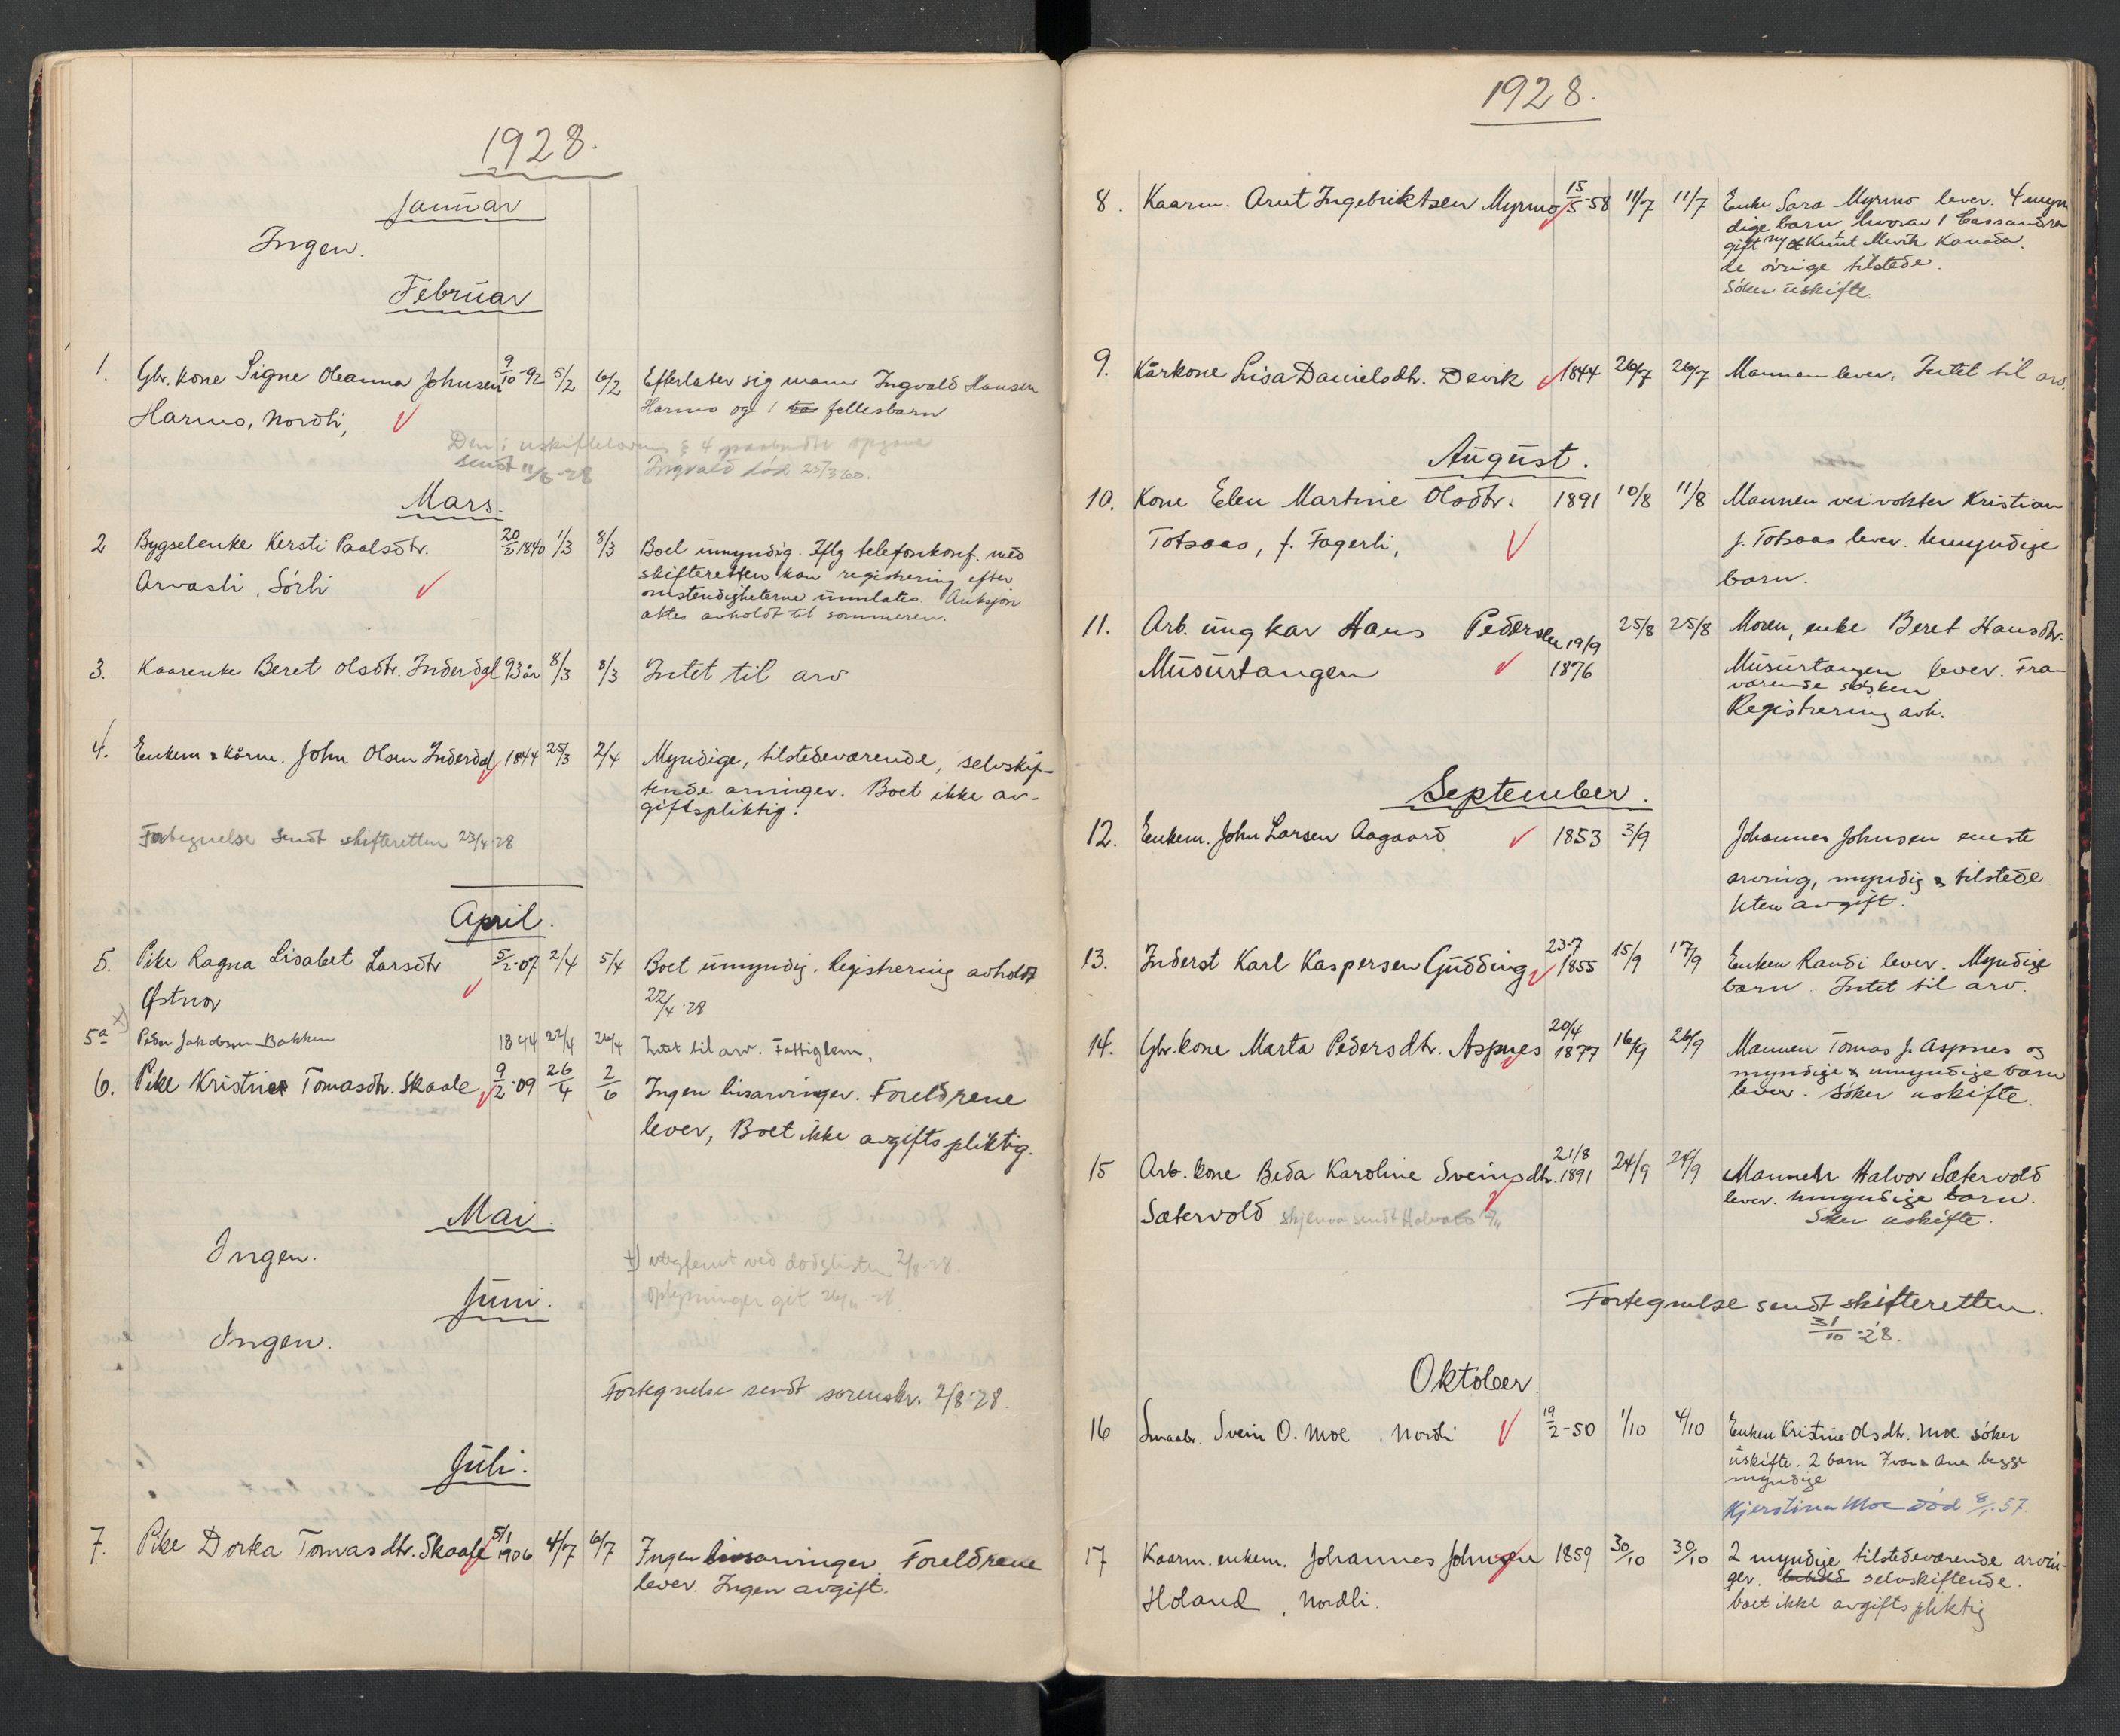 1928.
Januar
Ingen.
Februar
1. Gbr. kone Signe Oleanna Johnsen 9/10-92 5/2 6/2 Efterlater sig mann Ingvald Hansen
Harmo, Nordli, Harmo og 1 fellesbarn
Den i uskifteloven § 4 paabudte opgave
sendt 11/6-28 Ingvald død 25/3 60.
Mars.
2 Bygselenke Kersti Paalsdtr. 1840 1/3 8/3 Boet umyndig. Iflg telefonkonf. med
Arvasli, Sörli skifteretten kan registrering efter
omstendigheterne undlates. Auksjon
aktes avholdt til sommeren.
3. Kaarenke Beret Olsdtr. Inderdal 93 år 8/3 8/3 Intet til arv
4. Enkem & kårm. John Olsen Inderdal 1844 25/3 2/4 Myndige, tilstedeværende, selvskif-
tende arvinger. Boet ikke av-
giftspliktig.
Fortegnelse sendt skifteretten 23/4-28
April.
5. Pike Ragna Lisabet Larsdtr 5/2-07 2/4 5/4 Boet umyndig. Registrering avholdt
Østnor 22/4-28
x)
5a Peder Jakobsen Bakken 1844 22/4 26/4 Intet til arv. Fattiglem,
6. Pike Kristine Tomasdtr. Skaale 9/2-09 26/4 2/6 Ingen livsarvinger. Foreldrene
lever, Boet ikke avgiftspliktig.
Mai.
Ingen.
x) ved dødslisten 2/8-28.
oplysninger git 26/11-28
Juni.
Ingen.
Fortegnelse sendt sorenskr. 2/8-28.
Juli.
7. Pike Dorka Tomasdtr. Skaale 5/1 1906 4/7 6/7 Ingen livsarvinger. Foreldrene
lever. Ingen avgift.
1928.
8. Kaarm. Arnt Ingebriktsen Myrmo 15/5-58 11/7 11/7 Enke Sara Myrmo lever. 4 myn
dige barn, hvorav 1 Cassandra
gift m/ Knut Mevik Kanada.
de øvrige tilstede.
Söker uskifte.
9. Kårkone Lisa Danielsdtr. Devik 1844 26/7 26/7 Mannen lever, Intet til arv.
August.
10. Kone Elen Martine Olsdtr. 1891 10/8 11/8 Mannen veivokter Kristian
Totsaas, f. Fagerli, J. Totsaas lever. Umyndige
barn.
11. Arb. ungkar Hans Pedersen 19/9 25/8 25/8 Moren, enke Beret Hansdtr.
Musurtangen 1876 Musurtangen lever. Fra
værende søsken
Registrering avh.
September.
12. Enkem. John Larsen Aagaard 1853 3/9 Johannes Johnsen eneste
arving, myndig & tilstede.
Uten avgift.
13. Inderst Karl Kaspersen Gudding 23-7 1855 15/9 17/9 Enken Randi lever. Myndige
barn. Intet til arv.
14. Gbr. kone Marta Pedersdtr. Aspnes 20/4 1877 16/9 26/9 Mannen Tomas J. Aspnes og
myndige & umyndige barn
lever. Söker uskifte.
15 Arb. kone Beda Karoline Sveinsdtr. 21/8 1891 24/9 26/9 Mannen Halvor Sætervold
Sætervold lever. Umyndige barn.
Söker uskifte.
Fortegnelse sendt skifteretten.
31/10-28.
Oktober
16 Smaabr. Svein O. Moe, Nordli 19/2-50 1/10 4/10 Enken Kristine Olsdtr. Moe söker
uskifte. 2 barn Ivar & Ane begge
myndige
Kjerstina Moe død 8/1.57.
17 Kaarm. enkem. Johannes Johnsen 1859 30/10 30/10 2 myndige tilstedeværende arvin-
Holand, Nordli. ger. selvskiftende.
boet ikke avgiftspliktig